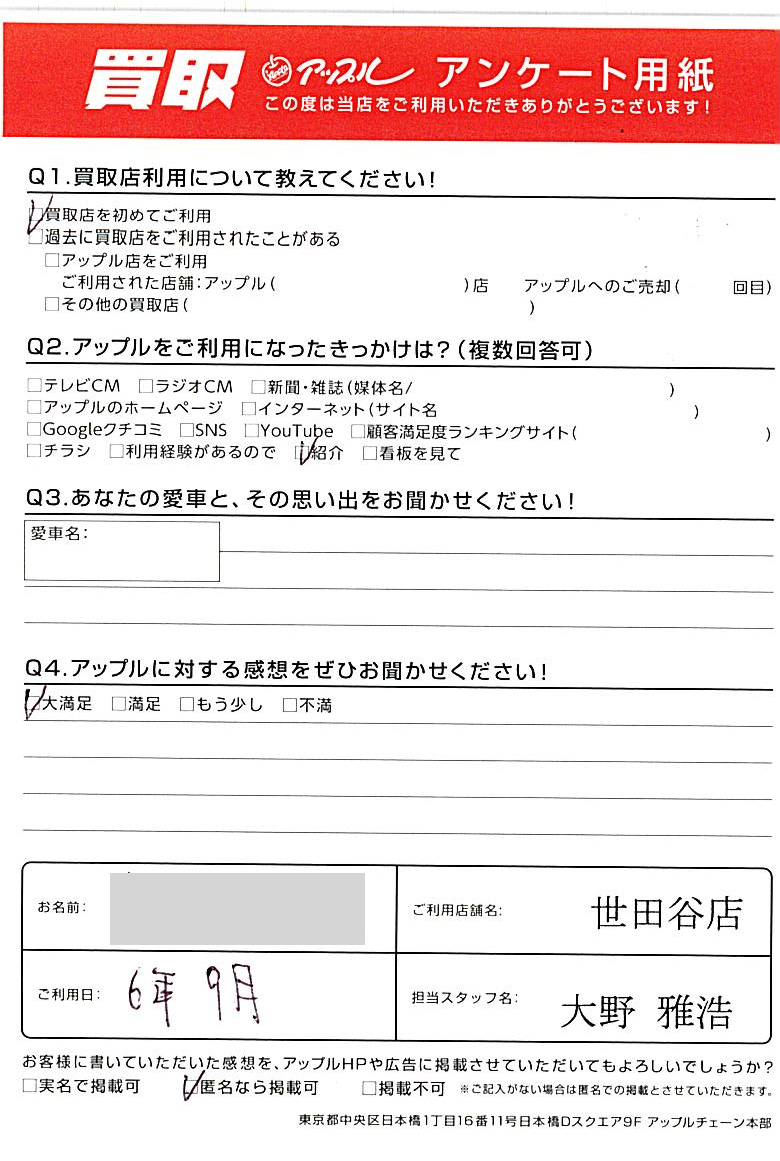 買取 アップル アンケート用紙
この度は当店をご利用いただきありがとうございます!
Q1.買取店利用について教えてください!
☑買取店を初めてご利用
□過去に買取店をご利用されたことがある
□アップル店をご利用
ご利用された店舗:アップル( )店 アップルへのご売却( 回目)
□その他の買取店( )
Q2.アップルをご利用になったきっかけは?(複数回答可)
□テレビCM □ラジオCM □新聞・雑誌(媒体名/ )
□アップルのホームページ □インターネット(サイト名 )
□Googleクチコミ □SNS □YouTube □顧客満足度ランキングサイト( )
□チラシ □利用経験があるので ☑紹介 □看板を見て
Q3.あなたの愛車と、その思い出をお聞かせください!
愛車名:
Q4.アップルに対する感想をぜひお聞かせください!
☑大満足 □満足 □もう少し □不満
お名前:
ご利用店舗名: 世田谷店
ご利用日: 6年 9月
担当スタッフ名: 大野 雅浩
お客様に書いていただいた感想を、アップルHPや広告に掲載させていただいてもよろしいでしょうか?
□実名で掲載可 ☑匿名なら掲載可 □掲載不可 ※ご記入がない場合は匿名での掲載とさせていただきます。
東京都中央区日本橋1丁目16番11号日本橋Dスクエア9F アップルチェーン本部